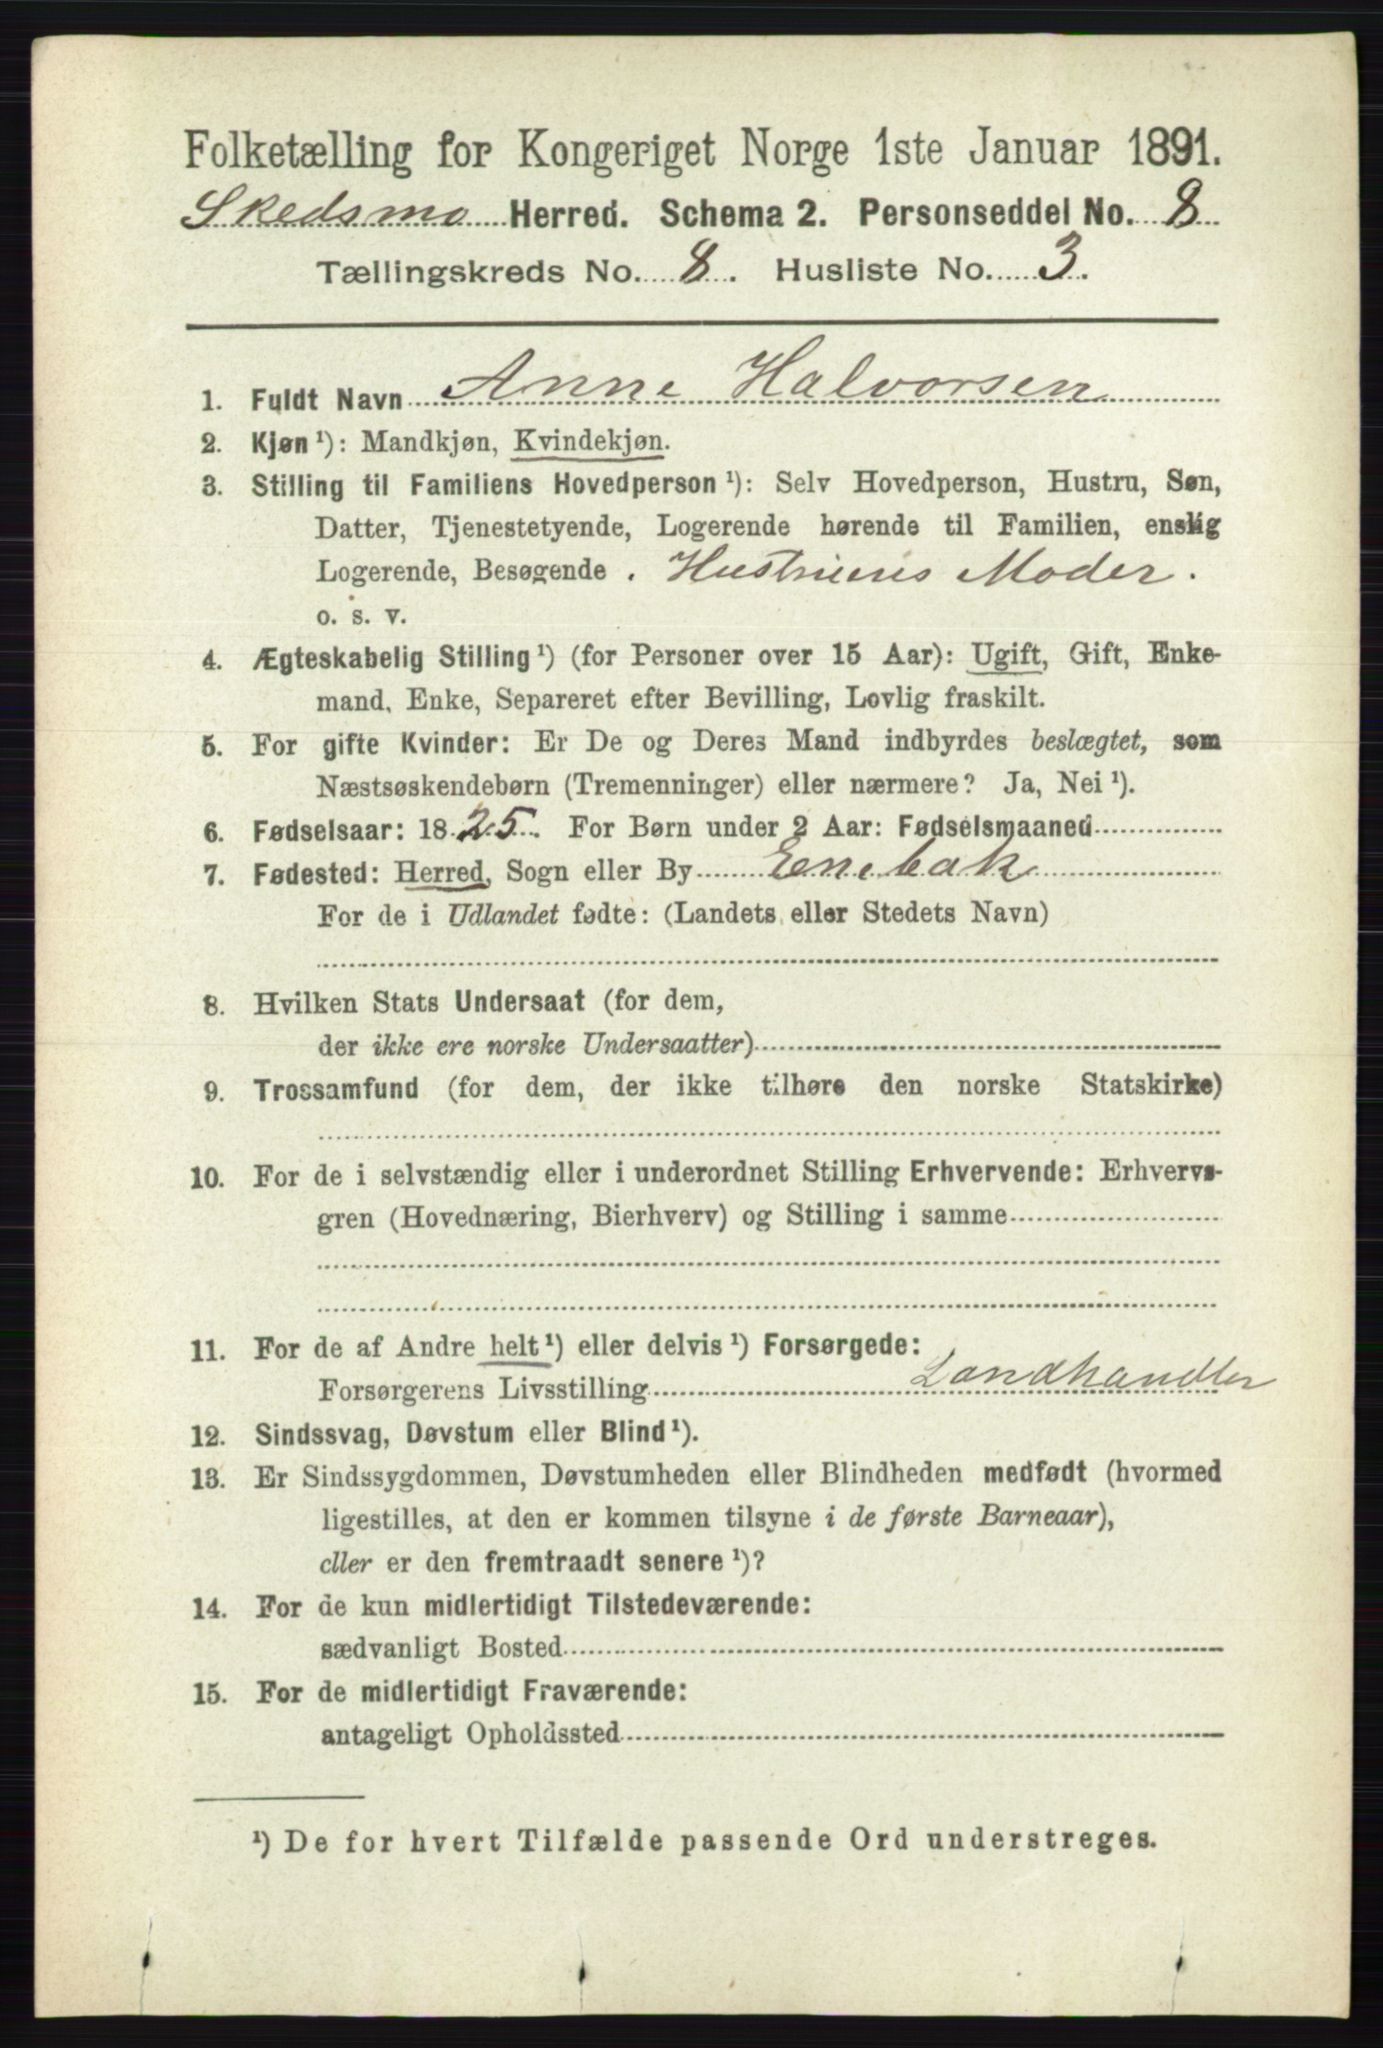 Folketælling for Kongeriget Norge 1ste Januar 1891.
Skedsmo Herred. Schema 2. Personseddel No. 8
Tællingskreds No. 8. Husliste No. 3.
1. Fuldt Navn Anne Halvorsen
2. Kjøn ¹): Mandkjøn, Kvindekjøn.
3. Stilling til Familiens Hovedperson ¹): Selv Hovedperson, Hustru, Søn,
Datter, Tjenestetyende, Logerende hørende til Familien, enslig
Logerende, Besøgende . Hustruens Moder.
o. s. v.
4. Ægteskabelig Stilling ¹) (for Personer over 15 Aar): Ugift, Gift, Enke-
mand, Enke, Separeret efter Bevilling, Lovlig fraskilt.
5. For gifte Kvinder: Er De og Deres Mand indbyrdes beslægtet, som
Næstsøskendebørn (Tremenninger) eller nærmere? Ja, Nei ¹).
6. Fødselsaar: 1825. For Børn under 2 Aar: Fødselsmaaned
7. Fødested: Herred, Sogn eller By Enebak
For de i Udlandet fødte: (Landets eller Stedets Navn)
8. Hvilken Stats Undersaat (for dem,
der ikke ere norske Undersaatter)
9. Trossamfund (for dem, der ikke tilhøre den norske Statskirke)
10. For de i selvstændig eller i underordnet Stilling Erhvervende: Erhvervs-
gren (Hovednæring, Bierhverv) og Stilling i samme
11. For de af Andre helt ¹) eller delvis ¹) Forsørgede:
Forsørgerens Livsstilling Landhandler
12. Sindssvag, Døvstum eller Blind ¹).
13. Er Sindssygdommen, Døvstumheden eller Blindheden medfødt (hvormed
ligestilles, at den er kommen tilsyne i de første Barneaar),
eller er den fremtraadt senere ¹)?
14. For de kun midlertidigt Tilstedeværende:
sædvanligt Bosted
15. For de midlertidigt Fraværende:
antageligt Opholdssted
¹) De for hvert Tilfælde passende Ord understreges.